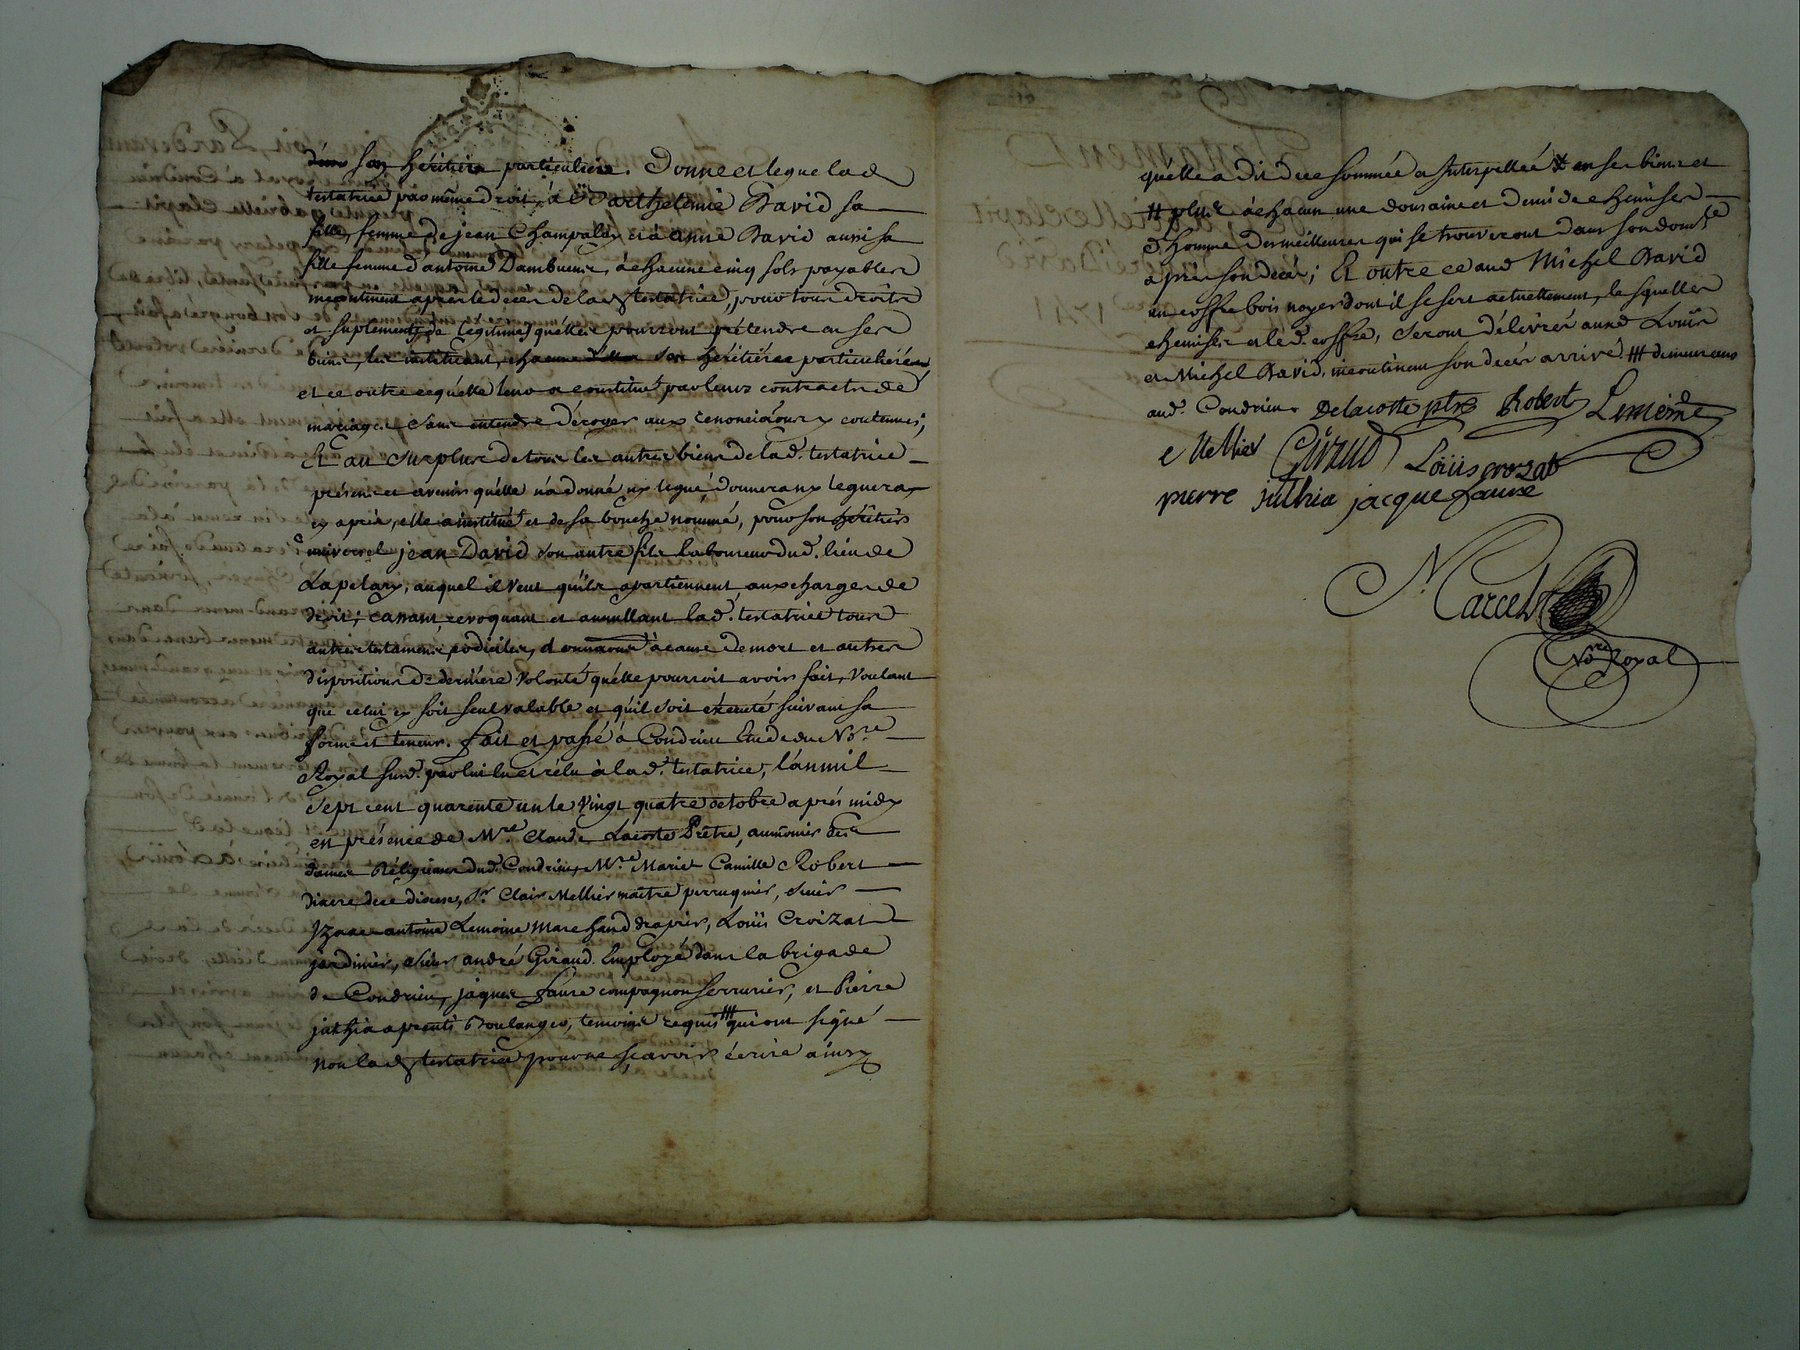 d'eux son héritière particulière. Donne et legue lad.
testatrice par même droit, à Barthelemie David sa
fille, femme de jean Champalay et à anne David aussi sa
fille femme d'antoine Dambuent, à chacune cinq sols payables
incontinent après le decez de lad. testatrice, pour tous droits
et suplements de légitime qu'elles pourront prétendre en ses
biens, les instituant, chacune d'elles son héritière particulière,
et ce outre ce qu'elle leur a constitué par leurs contracts de
mariage. sans entendre déroger aux renonciations y contenues;
Et au surplus de tous les autres biens de lad. testatrice
présens et avenirs qu'elle n'a donné ny legué, donnera ny leguera
cy après, elle a institué et de sa bouche nommé, pour son héritier
universel jean David son autre fils laboureur dud. lieu de
Lapelary, auquel il veut qu'ils apartiennent, aux charges de
droit; cassant, revoquant et annullant lad. testatrice tous
autres testamens, codiciles, donnations à cause de mort et autres
dispositions de dernière volonté qu'elle pourroit avoir fait, Voulant
que celui cy soit seul valable et qu'il soit éxécuté suivant sa
forme et teneur. fait et passé à Condrieu Etude du No.re
Royal susd. par lui lu et rélu à lad. testatrice, l'an mil
sept cent quarente un le vingt quatre octobre après midy
en présence de M.re Claude Lacoste Prêtre, aumônier des
dames Réligieuses dud. Condrieu, M.re Marie Camille Robert
diacre de ce diocese, S.r Clair Mellier maître perruquier, sieur
Izaac antoine Lemoine Marchand drapier, Loüis Croizat
jardinier, sieur andré Giraud Employé dans la brigade
de Condrieu, jaques faure compagnon serrurier, et Pierre
juthia aprenti Boulanger, temoins requis ### qui ont signé
non lad. testatrice pour ne sçavoir écrire ainsy
qu'elle a dit de ce sommée et Interpellée # en ses biens et
## plus à chacun une douzaine et demi de chemises
d'homme des meilleures qui se trouveront dans son dom.le
après son decez; Et outre ce aud. Michel David
un coffre bois noyer dont il se sert actuellement, lesquelles
chemises et led. coffre, seront délivrés auxd. Loüis
et Michel David, incontinent son decez arrivé ### demeurans
aud. Condrieu. Delacoste ptre Robert Lemoine
C Mellier Giraud Loüis crozat
pierre juthia jacque faure
N. Marcel
No.re Royal